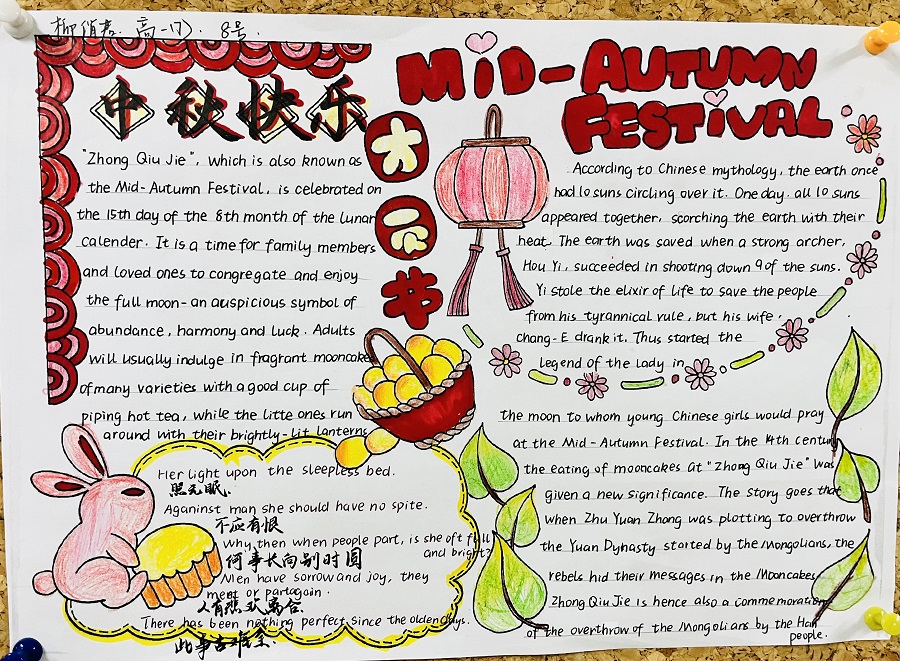 高一(7). 8号.
中秋快乐
MiD-AUTUMN
FESTiVAL
"Zhong Qiu Jie", which is also known as
the Mid-Autumn Festival, is celebrated on
the 15th day of the 8th month of the lunar
calender. It is a time for family members
and loved ones to congregate and enjoy
the full moon-an auspicious symbol of
abundance, harmony and luck. Adults
will usually indulge in fragrant mooncakes
of many varieties with a good cup of
piping hot tea, while the litte ones run
around with their brightly-lit lanterns
According to Chinese mythology, the earth once
had 10 suns circling over it. One day. all 10 suns
appeared together, scorching the earth with their
heat. The earth was saved when a strong archer,
Hou Yi, succeeded in shooting down 9 of the suns.
Yi stole the elixir of life to save the people
from his tyrannical rule, but his wife,
Chang-E drank it. Thus started the
legend of the lady in
the moon to whom young Chinese girls would pray
at the Mid-Autumn Festival. In the 14th century
the eating of mooncakes at "Zhong Qiu Jie" was
given a new significance. The story goes that
when Zhu Yuan Zhang was plotting to overthrow
the Yuan Dynasty started by the Mongolians, the
rebels hid their messages in the Mooncakes
Zhong Qiu Jie is hence also a commemoration
of the overthrow of the Mongolians by the Han
people.
Her light upon the sleepless bed.
照无眠.
Aganinst man she should have no spite.
不应有恨
Why then when people part, is she oft full
and bright?
何事长向别时圆
Men have sorrow and joy, they
meet or part again.
人有悲欢离合.
There has been nothing perfect since the olden days.
此事古难全.